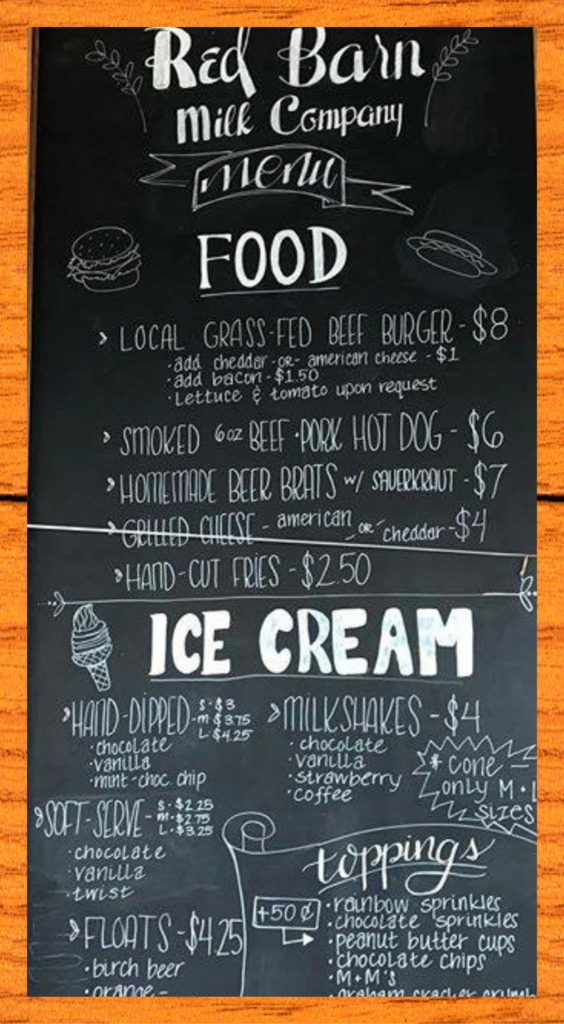 Red Barn
Milk Company
menu
FOOD
LOCAL GRASS-FED BEEF BURGER - $8
· add cheddar -OR- american cheese - $1
· add bacon - $1.50
· Lettuce & tomato upon request
SMOKED 6oz BEEF · PORK HOT DOG - $6
HOMEMADE BEER BRATS w/ SAUERKRAUT - $7
GRILLED CHEESE - american -OR- cheddar - $4
HAND-CUT FRIES - $2.50
ICE CREAM
HAND-DIPPED - S - $3
M $3.75
L - $4.25
· chocolate
· vanilla
· mint-choc. chip
SOFT-SERVE - S - $2.25
M - $2.75
L - $3.25
· chocolate
· vanilla
· twist
FLOATS - $4.25
· birch beer
· orange -
MILKSHAKES - $4
· chocolate
· vanilla
· strawberry
· coffee
* cone
only M · L
sizes
toppings
+50 ¢
· rainbow sprinkles
· chocolate sprinkles
· peanut butter cups
· chocolate chips
· M+M'S
· graham cracker